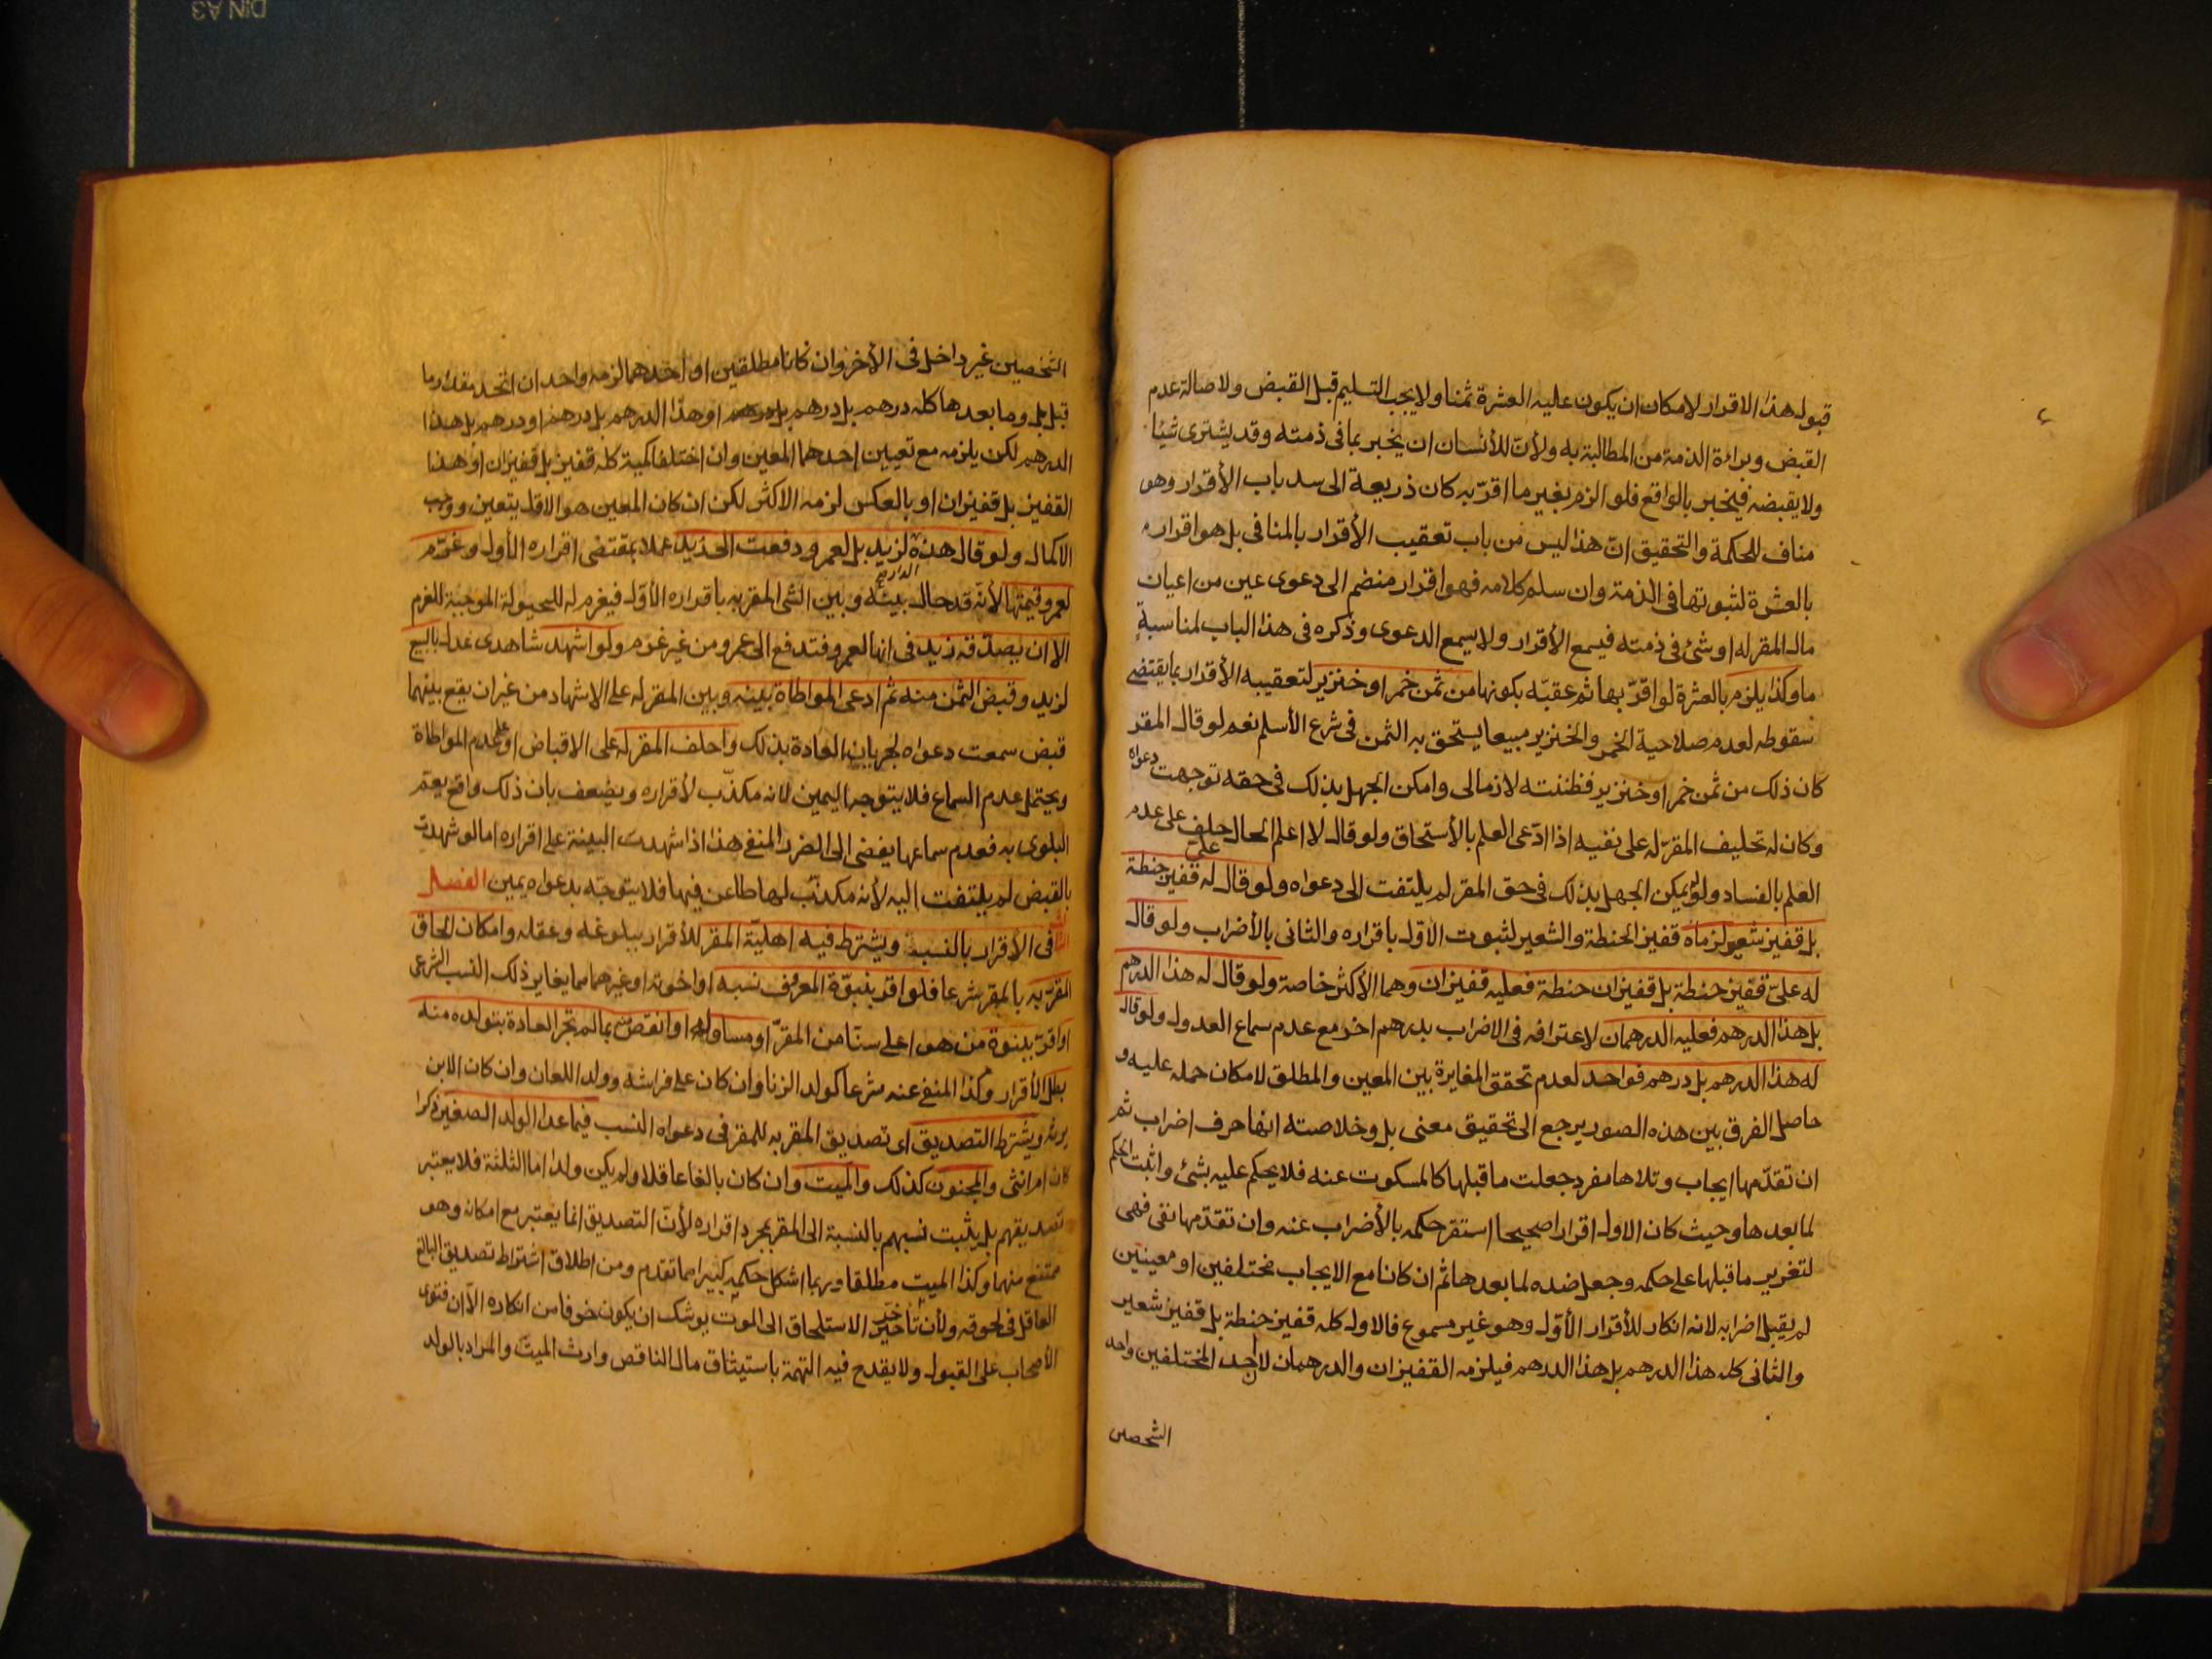 قبوله هذا الاقرار لامكان ان يكون عليه العشرة ثمنا ولا يجب التسليم قبل القبض ولاصالة عدم
القبض وبراءة الذمة من المطالبة به ولأنّ للأنسان ان يخبر بما فى ذمته وقد يشترى شيئا
ولا يقبضه فيخبر بالواقع فلو الزم بغير ما اقرّ به كان ذريعة الى سد باب الأقرار وهو
مناف للحكمة والتحقيق انّ هذا ليس من باب تعقيب الأقرار بالمنافى بل هو اقراره
بالعشرة لثبوتها فى الذمة وان سلم كلامه فهو اقرار منضم الى دعوى عين من اعيان
مال المقر له او شئ فى ذمته فيسمع الأقرار ولا يسمع الدعوى وذكره فى هذا الباب لمناسبةٍ
ما وكذا يلزم بالعشرة لو اقرّ بها ثم عقبّه بكونها من ثمن خمر او خنزير لتعقيبه الأقرار بما يقتضى
سقوطه لعدم صلاحية الخمر والخنزير مبيعا يستحق به الثمن فى شرع الأسلم نعم لو قال المقر
كان ذلك من ثمن خمر او خنزير فظننته لازما لى وامكن الجهل بذلك فى حقه توجهت دعواه
وكان له تحليف المقرّ له على نفيه اذا ادّعى العلم بالأستحاق ولو قال لا اعلم الحال حلف على عدم
العلم بالفساد ولو لم يمكن الجهل بذلك فى حق المقر لم يلتفت الى دعواه ولو قال له علىّ قفيز حنطة
بل قفيز شعير لزماه قفيز الحنطة والشعير لثبوت الأوّل باقراره والثانى بالأضراب ولو قال
له علىّ قفيز حنطة بل قفيزان حنطة فعليه قفيزان وهما الأكثر خاصة ولو قال له هذا الدرهم
بل هذا الدرهم فعليه الدرهمان لاعترافه فى الاضراب بدرهم اخر مع عدم سماع العدول ولو قال
له هذا الدرهم بل درهم فواحد لعدم تحقق المغايرة بين المعين والمطلق لامكان حمله عليه و
حاصل الفرق بين هذه الصور يرجع الى تحقيق معنى بل وخلاصته انها حرف اضراب ثم
ان تقدّمها ايجاب وتلاها مفرد جعلت ما قبلها كالمسكوت عنه فلا يحكم عليه بشئ واثبت الحكم
لما بعدها وحيث كان الاول اقرارا صحيحا استقر حكمه بالأضراب عنه وان تقدّمها نفى فهى
لتقرير ما قبلها على حكمه وجعل ضده لما بعدها ثم ان كانا مع الايجاب مختلفين او معينين
لم يقبل اضرابه لانه انكار للأقرار الأوّل وهو غير مسموع فالاول كله قفيز حنطة بل قفيز شعير
والثانى كله هذا الدرهم بل هذا الدرهم فيلزمه القفيزان والدرهمان لان احد المختلفين واحد
الشخصين
الشخصين غير داخل فى الأخر وان كانا مطلقين او احدهما لزمه واحد ان اتحد مقدار ما
قبل بل وما بعدها كله درهم بل درهم او هذا الدرهم بل درهم او درهم بل هذا
الدرهم لكن يلزمه مع تعيين احدهما المعين وان اختلفا كمية كله قفيز بل قفيزان او هذا
القفيز بل قفيزان او بالعكس لزمه الاكثر لكن ان كان المعين هو الاقل يتعين ووجب
الاكمال ولو قال هذه لزيد بل لعمرو دفعت الى زيد عملا بمقتضى اقراره الأول وغرّم
لعمرو قيمتها لأنه قد حال بينه وبين الشئ المقر به باقراره الأوّل فيغرم له للحيولة الموجبة للغرم
الا ان يصدّقه زيد فى انها لعمرو فتدفع الى عمرو من غير غرم ولو اشهد شاهدى عدل بالبيع
لزيد وقبض الثمن منه ثم ادعى المواطاة بينه وبين المقر له على الاشهاد من غير ان يقع بينهما
قبض سمعت دعواه لجريان العادة بذلك واحلف المقر له على الاقباض او على عدم المواطاة
ويحتمل عدم السماع فلا يتوجه اليمين لانه مكذّب لأقراره ويضعف بان ذلك واقع يعمّ
البلوى به فعدم سماعها يفضى الى الضرر المنفى هذا اذا شهدت البينة على اقراره اما لو شهدت
بالقبض لم يلتفت اليه لأنه مكذّب لها طاعن فيها فلا يتوجّه بدعواه يمين الفصل
الثالث فى الأقرار بالنسب ويشترط فيه اهليّة المقر للأقرار ببلوغه وعقله وامكان الحاق
المقرّ به بالمقر شرعا فلو اقر ببنوّة المعروف نسبه او اخوته او غيرهما مما يغاير ذلك النسب الشرعى
او اقرّ ببنوة من هو اعلى سنّا من المقرّ او مساو له او انقص بما لم تجر العادة بتولده منه
بطل الأقرار وكذا المنفى عنه شرعا كولد الزنا وان كان على فراشه وولد اللعان وان كان الابن
يرثه ويشترط التصديق اى تصديق المقر به للمقر فى دعواه النسب فيما عدا الولد الصغير ذكرا
كان ام انثى والمجنون كذلك والميت وان كان بالغا عاقلا ولم يكن ولدا اما الثلثة فلا يعتبر
تصديقهم بل يثبت نسبهم بالنسبة الى المقر بمجرد اقراره لأنّ التصديق انما يعتبر مع امكانه وهو
ممتنع منها وكذا الميت مطلقا وربما اشكل حكمه كبيرا مما تقدم ومن اطلاق اشتراط تصديق البالغ
العاقل فى لحوقه ولأن تأخير الاستلحاق الى الموت يوشك ان يكون خوفا من انكاره الاّ ان فتوى
الأصحاب على القبول ولا يقدح فيه التهمة باستيثاق مال الناقص وارث الميت والمراد بالولد